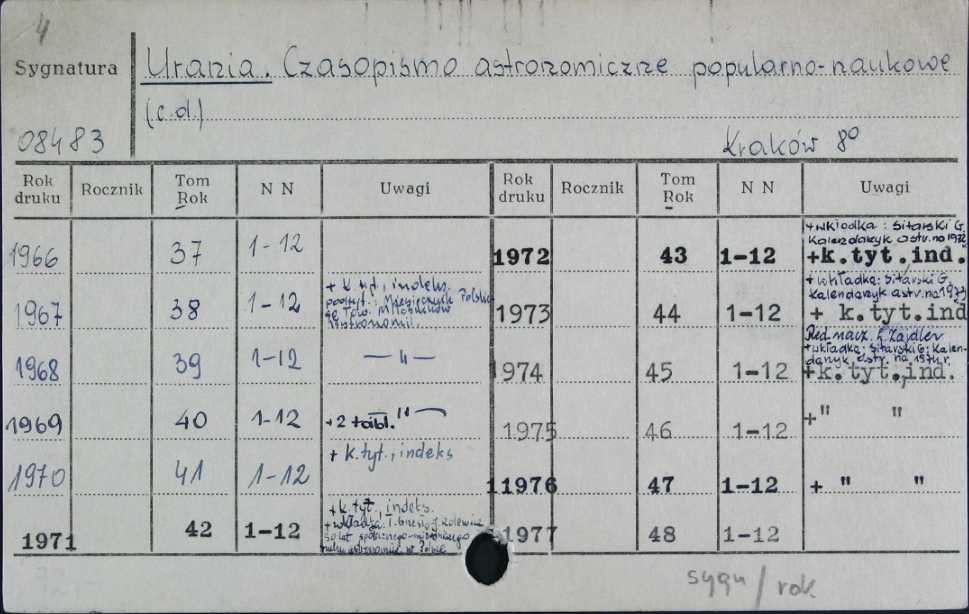 4
Sygnatura
Urania. Czasopismo astronomiczne popularno-naukowe
(c.d.)
08483
Kraków 8º
Rok druku Rocznik Tom Rok N N Uwagi
1966 37 1-12
1967 38 1-12 + k. tyt., indeks
podtyt.: Miesięcznik Polskie
go Tow. Miłośników
Astronomii.
1968 39 1-12 — 11 —
1969 40 1-12 +2 tabl. "
1970 41 1-12 + k.tyt., indeks
1971 42 1-12 + k. tyt., indeks.
+ wkładka: 50 lat społecznego
ruchu astronomic. w Polsce
Rok druku Rocznik Tom Rok N N Uwagi
1972 43 1-12 + wkładka: Sitarski G.
Kalendarzyk astr. na 1972
+k.tyt,ind.
1973 44 1-12 + wkładka: Sitarski G.
Kalendarzyk astr. na 1973
+ k.tyt.ind
1974 45 1-12 Red. nacz. L. Zajdler
+ wkładka: Sitarski G: Kalen-
darzyk astr. na 1974 r.
+k.tyt.,ind.
1975 46 1-12 +" "
11976 47 1-12 + " "
1977 48 1-12
sygn / rok